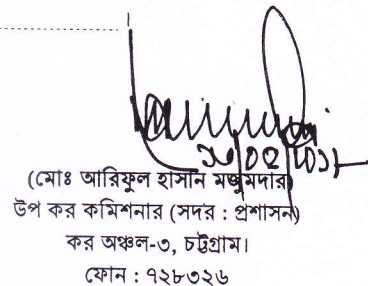 (মোঃ আরিফুল হাসান মজুমদার)
উপ কর কমিশনার (সদর : প্রশাসন)
কর অঞ্চল-৩, চট্টগ্রাম।
ফোন : ৭২৮৩২৬